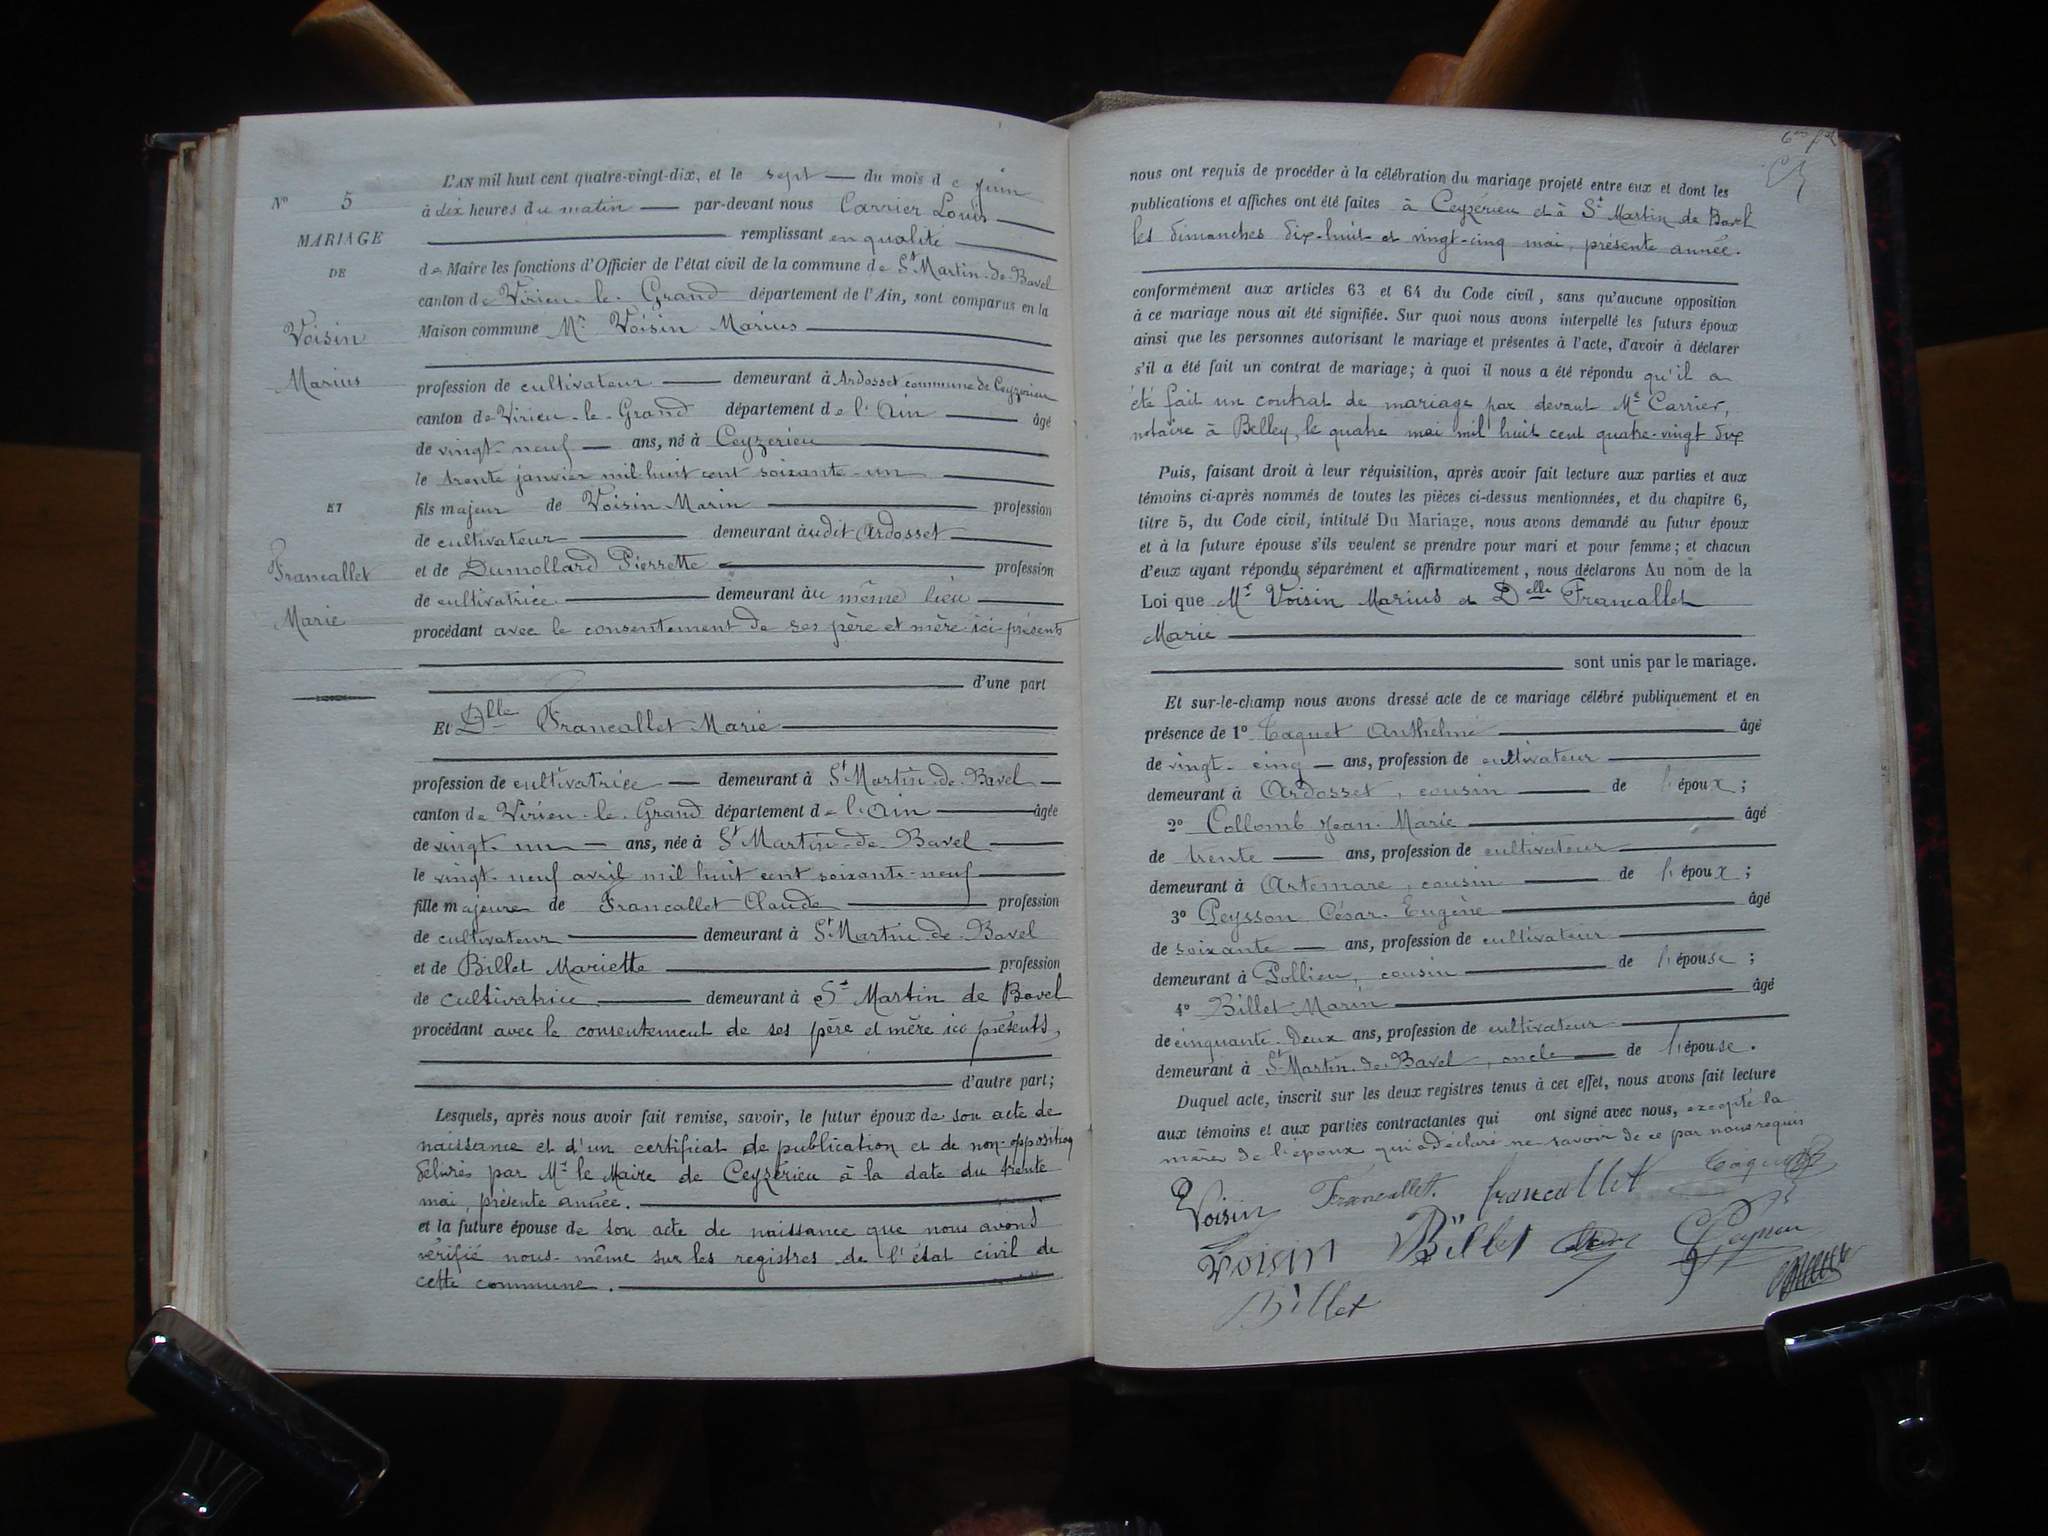 No 5
MARIAGE
DE
Voisin
Marius
ET
Francallet
Marie
L'AN mil huit cent quatre-vingt-dix, et le sept du mois de juin
à dix heures du matin par-devant nous Carrier Louis
remplissant en qualité
de Maire les fonctions d'Officier de l'état civil de la commune de St Martin-de-Bavel
canton de Virieu-le-Grand département de l'Ain, sont comparus en la
Maison commune Mr Voisin Marius
profession de cultivateur demeurant à Ardosset commune de Ceyzerieu
canton de Virieu-le-Grand département de l'Ain âgé
de vingt-neuf ans, né à Ceyzerieu
le trente janvier mil huit cent soixante-un
fils majeur de Voisin Marin profession
de cultivateur demeurant àudit Ardosset
et de Dumollard Pierrette profession
de cultivatrice demeurant àu même lieu
procédant avec le consentement de ses père et mère ici présents
d'une part
Et Dlle Francallet Marie
profession de cultivatrice demeurant à St Martin-de-Bavel
canton de Virieu-le-Grand département de l'Ain âgée
de vingt-un ans, née à St Martin-de-Bavel
le vingt-neuf avril mil huit cent soixante-neuf
fille majeure de Francallet Claude profession
de cultivateur demeurant à St Martin-de-Bavel
et de Billet Mariette profession
de cultivatrice demeurant à St Martin de Bavel
procédant avec le consentement de ses père et mère ici présents,
d'autre part;
Lesquels, après nous avoir fait remise, savoir, le futur époux de son acte de
naissance et d'un certificat de publication et de non-opposition
délivrés par Mr le Maire de Ceyzérieu à la date du trente
mai, présente année.
et la future épouse de son acte de naissance que nous avons
vérifié nous-même sur les registres de l'état civil de
cette commune.
nous ont requis de procéder à la célébration du mariage projeté entre eux et dont les
publications et affiches ont été faites à Ceyzérieu et à St Martin de Bavel
les dimanches dix-huit et vingt-cinq mai, présente année.
conformément aux articles 63 et 64 du Code civil, sans qu'aucune opposition
à ce mariage nous ait été signifiée. Sur quoi nous avons interpellé les futurs époux
ainsi que les personnes autorisant le mariage et présentes à l'acte, d'avoir à déclarer
s'il a été fait un contrat de mariage; à quoi il nous a été répondu qu'il a
été fait un contrat de mariage par devant Me Carrier,
notaire à Belley, le quatre mai mil huit cent quatre-vingt dix
Puis, faisant droit à leur réquisition, après avoir fait lecture aux parties et aux
témoins ci-après nommés de toutes les pièces ci-dessus mentionnées, et du chapitre 6,
titre 5, du Code civil, intitulé Du Mariage, nous avons demandé au futur époux
et à la future épouse s'ils veulent se prendre pour mari et pour femme; et chacun
d'eux ayant répondu séparément et affirmativement, nous déclarons Au nom de la
Loi que Mr Voisin Marius et Delle Francallet
Marie
sont unis par le mariage.
Et sur-le-champ nous avons dressé acte de ce mariage célébré publiquement et en
présence de 1º Coquet Anthelme âgé
de vingt-cinq ans, profession de cultivateur
demeurant à Ardosset, cousin de l'époux;
2º Collomb Jean-Marie âgé
de trente ans, profession de cultivateur
demeurant à Artemare, cousin de l'époux;
3º Peysson César-Eugène âgé
de soixante ans, profession de cultivateur
demeurant à Pollieu, cousin de l'épouse;
4º Billet Marin âgé
de cinquante-deux ans, profession de cultivateur
demeurant à St Martin-de-Bavel, oncle de l'épouse.
Duquel acte, inscrit sur les deux registres tenus à cet effet, nous avons fait lecture
aux témoins et aux parties contractantes qui ont signé avec nous, excepté la
mère de l'époux qui a déclaré ne savoir de ce par nous requis
Voisin Francallet francallet
Voisin Billet Peysson
Billet